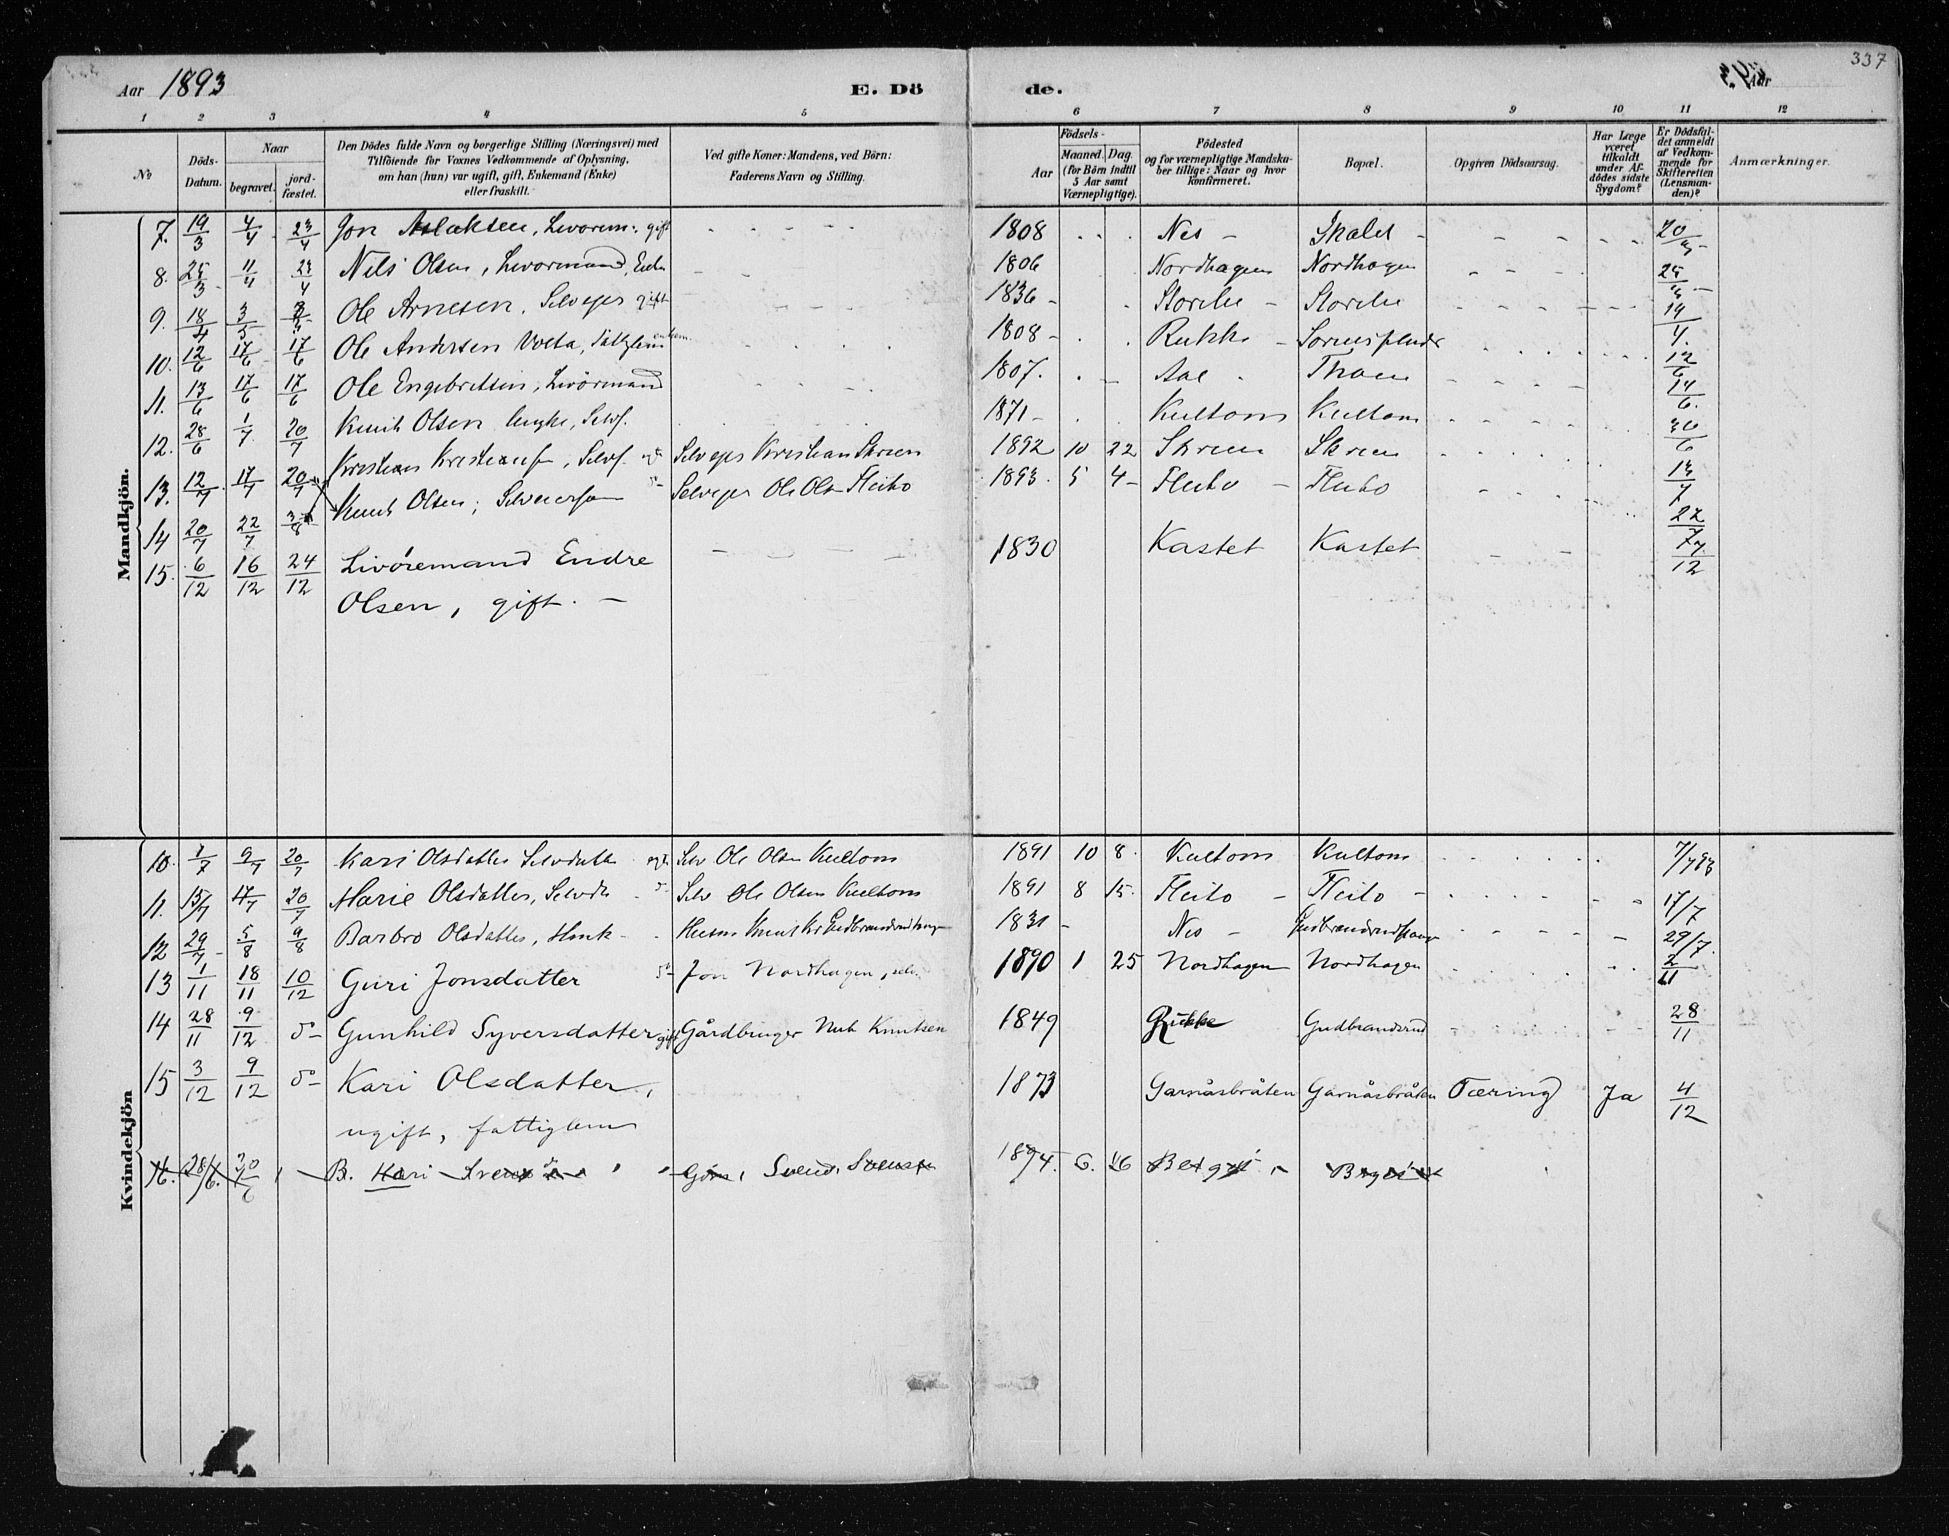 Aar 1893
E. Dö
de.
Aar
337
1 2 3 4 5 6 7 8 9 10 11 12
No
Döds-Datum.
Naar
begravet.
jord-fæstet.
Den Dödes fulde Navn og borgerlige Stilling (Næringsvei) med
Tilföiende for Voxnes Vedkommende af Oplysning,
om han (hun) var ugift, gift, Enkemand (Enke)
eller fraskilt.
Ved gifte Koner: Mandens, ved Börn:
Faderens Navn og Stilling.
Födsels-
Aar
Maaned. Dag.
(for Börn indtil
5 Aar samt
Værnepligtige).
Födested
og for værnepligtige Mandska-
ber tillige: Naar og hvor
konfirmeret.
Bopæl.
Opgiven Dödsaarsag.
Har Læge
været
tilkaldt
under Af-
dödes sidste
Sygdom?
Er Dödsfal-
det anmeldt
af Vedkom-
mende for
Skifteretten
(Lensman-
den)?
Anmærkninger.
Mandkjön.
7. 19/3 4/4 23/4 Jon Aslaksen, Livörem. gift 1808 Nes Skalet 20/3
8. 25/3 11/4 23/4 Nils Olsen, Livörmand, Enkem 1806 Nordhagen Nordhagen 25/3
9. 18/4 3/5 Ole Arnesen, Selvejer gift 1836 Storelie Storelie 19/4
10. 12/6 17/6 17/6 Ole Andersen Volta, Fattiglem enkem. 1808 Rukke 12/6
11. 13/6 17/6 17/6 Ole Engebretsen, Livörmand 1807. Aal Thoen 14/6
12. 28/6 1/7 20/7 Knut Olsen ungke, Selvf. 1871 Kultom Kultom 30/6
13. 12/7 17/7 20/7 Kristian Kristiansen, Selvf. Selvejer Kristian Skreen 1892 10 22 Skreen Skreen 13/7
14 20/7 22/7 Knut Olsen, Selveiersøn Selvejer Ole Olsen Fleito 1893 5 4 Fleito Fleito 22/7
15. 6/12 16/12 24/12 Livöremand Endre 1830 Kastet Kastet 7/12
Olsen, gift.
Kvindekjön
10. 7/7 9/7 20/7 Kari Olsdatter Selvdatt Selv Ole Olsen Kultom 1891 10 8. Kultom Kultom 7/7 93
11. 15/7 17/7 20/7 Marie Olsdatter, Selvdt Selv Ole Olsen Kultom 1891 8 15. Fleito Fleito 17/7
12 29/7 5/8 9/8 Barbro Olsdatter, Husk Husm Knut 1831 Nes 29/7.
13 1/11 18/11 10/12 Guri Jonsdatter Jon Nordhagen, selv. 1890 1 25 Nordhagen Nordhagen 2/11
14 28/11 9/12 do Gunhild Syversdatter gift Gårdbruger Nub Knutsen 1849 Rukke Gudbrandsrud 28/11
15 3/12 9/12 do Kari Olsdatter, 1873 Garnåsbråten Garnåsbråten Tæring Ja 4/12
ugift, fattiglem
16. 28/6. 30/6 B. Kari Gbr. Svend Svensen 1894. 6. 26